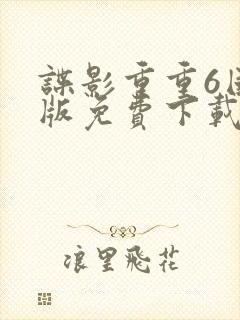 諜影重重6
版免費下載
浪里飛花